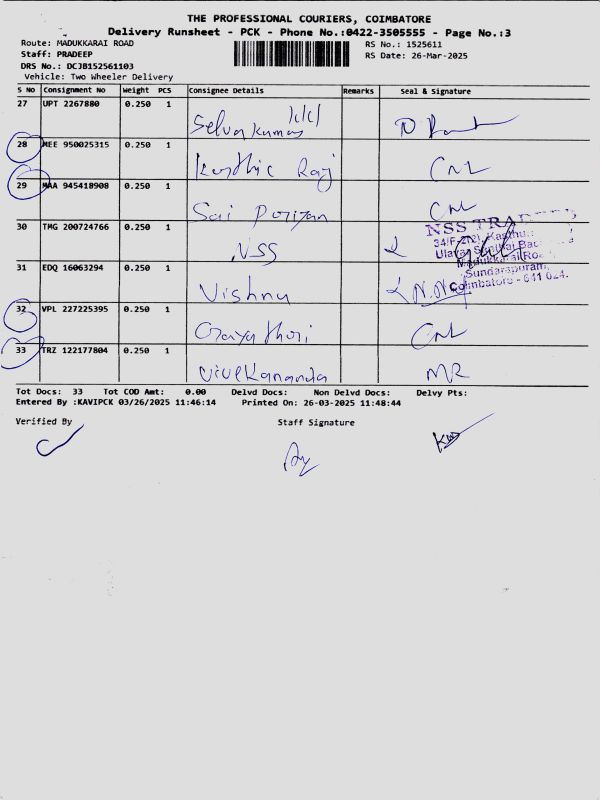 THE PROFESSIONAL COURIERS, COIMBATORE
Delivery Runsheet - PCK - Phone No.:0422-3505555 - Page No.:3
Route: MADUKKARAI ROAD
RS No.: 1525611
Staff: PRADEEP
RS Date: 26-Mar-2025
DRS No.: DCJB152561103
Vehicle: Two Wheeler Delivery
S No Consignment No Weight PCS Consignee Details Remarks Seal & Signature
27 UPT 2267880 0.250 1 Selva Kumar
28 MEE 950025315 0.250 1 Karthic Raj CNL
29 MAA 945418908 0.250 1 Sai CNL
30 TMG 200724766 0.250 1 NSS
NSS
34/F
Sundarapuram,
Coimbatore - 641 024.
31 EDQ 16063294 0.250 1 Vishnu
32 VPL 227225395 0.250 1 CNL
33 TRZ 122177804 0.250 1 Vivekananda MR
Tot Docs: 33 Tot COD Amt: 0.00 Delvd Docs: Non Delvd Docs: Delvy Pts:
Entered By :KAVIPCK 03/26/2025 11:46:14 Printed On: 26-03-2025 11:48:44
Verified By Staff Signature